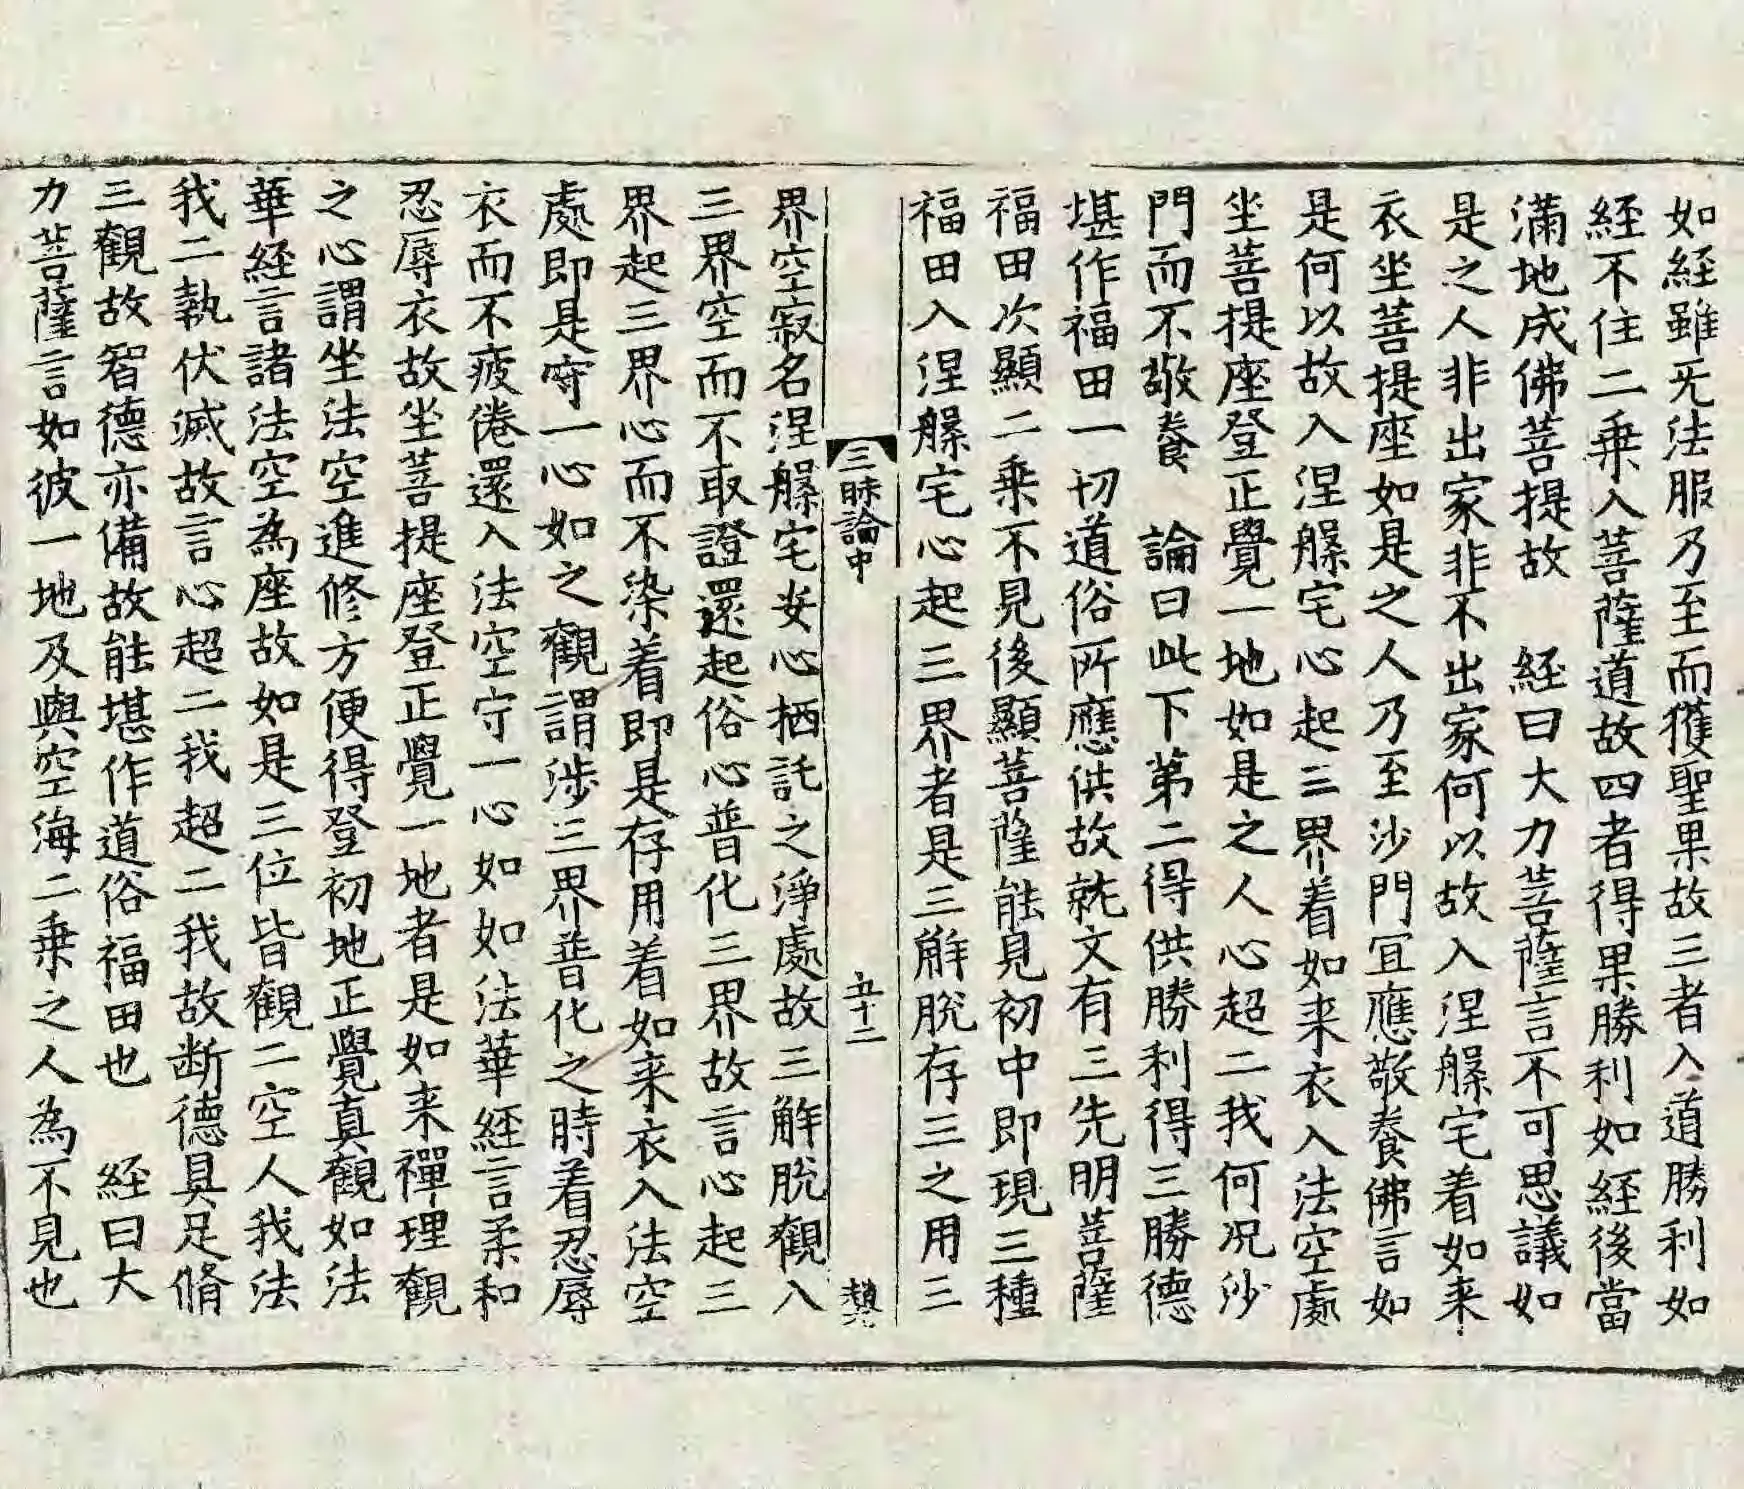 如經雖无法服乃至而獲聖果故三者入道勝利如
經不住二乗入菩薩道故四者得果勝利如經後當
滿地成佛菩提故　經曰大力菩薩言不可思議如
是之人非出家非不出家何以故入涅槃宅着如来
衣坐菩提座如是之人乃至沙門冝應敬養佛言如
是何以故入涅槃宅心起三界着如来衣入法空處
坐菩提座登正覺一地如是之人心超二我何况沙
門而不敬養　論曰此下第二得供勝利得三勝德
堪作福田一切道俗所應供故就文有三先明菩薩
福田次顯二乗不見後顯菩薩能見初中即現三種
福田入涅槃宅心起三界者是三解脫存三之用三
三昧論中　五十二
界空寂名涅槃宅安心栖託之淨處故三解脫觀入
三界空而不取證還起俗心普化三界故言心起三
界起三界心而不染着即是存用着如来衣入法空
處即是守一心如之觀謂涉三界普化之時着忍辱
衣而不疲倦還入法空守一心如如法華經言柔和
忍辱衣故坐菩提座登正覺一地者是如来禪理觀
之心謂坐法空進修方便得登初地正覺真觀如法
華經言諸法空為座故如是三位皆觀二空人我法
我二執伏滅故言心超二我超二我故断德具足脩
三觀故智德亦備故能堪作道俗福田也　經曰大
力菩薩言如彼一地及與空海二乗之人為不見也